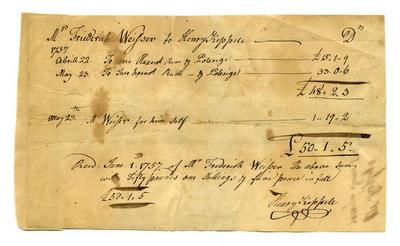 Mr Frederick Weisser to Henry Keppele Dr
1757
Abril 22 To one Hoxed Rum & Polenge £15-1-9
May 23 To Two hoxed Rum & Polenge 33.0.6
£48-2-3
May 23th Weisser for him Self 1-19-2
£50-1-5
Recd June 1th 1757 of Mr Frederick Weisser the above Sum
Fifty pounds one Shillings & five pence in full
£50.1.5
Henry Keppele